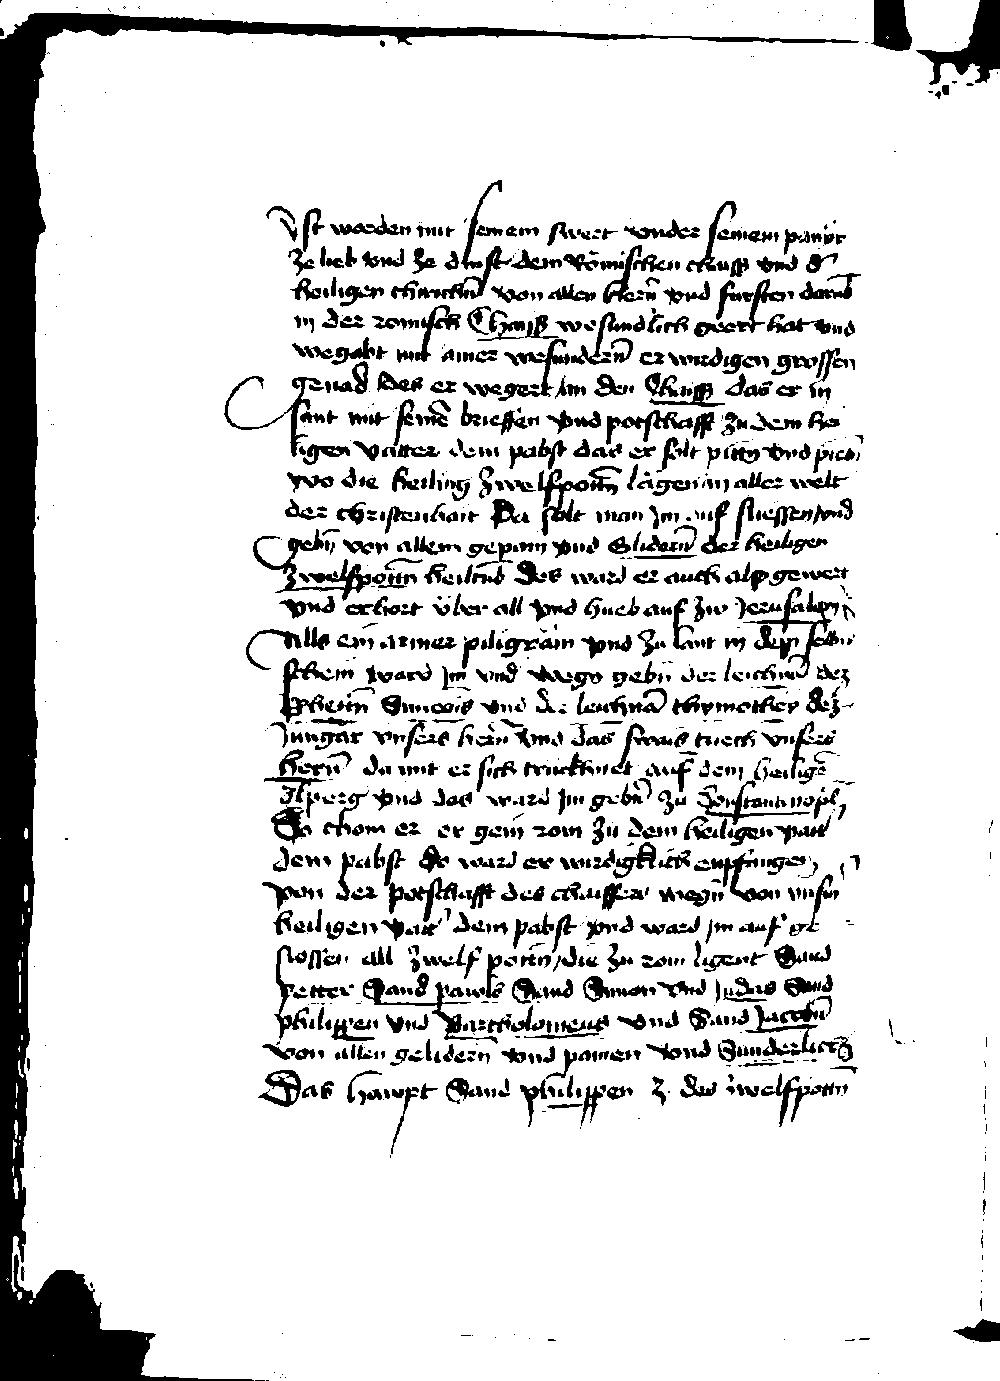 Ist worden mit seinem swert vnder seinem panir
ze lieb vnd ze dinst dem Römischen chaiss vnd d'
heiligen christenh von allen hern vnd fursten darvmb
in der romisch Chaiss wesundlich geert hat vnd
wegabt mit ainer wesundern erwirdigen grossen
genad des er wegert an den Chaiss das er in
sant mit seine brieffen vnd potschafft zu dem hei
ligen vatter dem pabst das er solt pittn vnd piettn
wo die heiling zwelfpottn lägen in aller welt
der christenhait Da solt man im auf sliessen vnd
gebn von allem gepain vnd Glidern der heiligen
Zwelfpottn heiltnd des ward er auch also gewert
vnd erhort über all vnd hueb auf zw Jerusalem
Alls ein armer piligräm vnd zu lant in dem selbn
schein ward im vnd wegn gebn der leichnä dez
Prhettn Simeons vnd der leichnä thymothey dez
Jungar vnsers hern vnd das swais tuech vnsers
hern da mit er sich trucknet auf dem heilige
Ölperg vnd das ward im gebn zu Constantinopl
So chom er er gein rom zu dem heiligen vatt
dem pabst do ward er wirdigklich enpfangen
von der potschafft des chaissers wegn von vnsn
heiligen vatt dem pabst vnd ward im auf ge
slossen all zwelf pottn die zu rom ligent Sand
petter Sand pawls Sand Simon vnd Judas Sand
philippen vnd Bartholomeus vnd Sand Jacobn
von allen gelidern vnd painen vnd Sunderlich
Das hawpt Sand philippen z des zwelfpottn